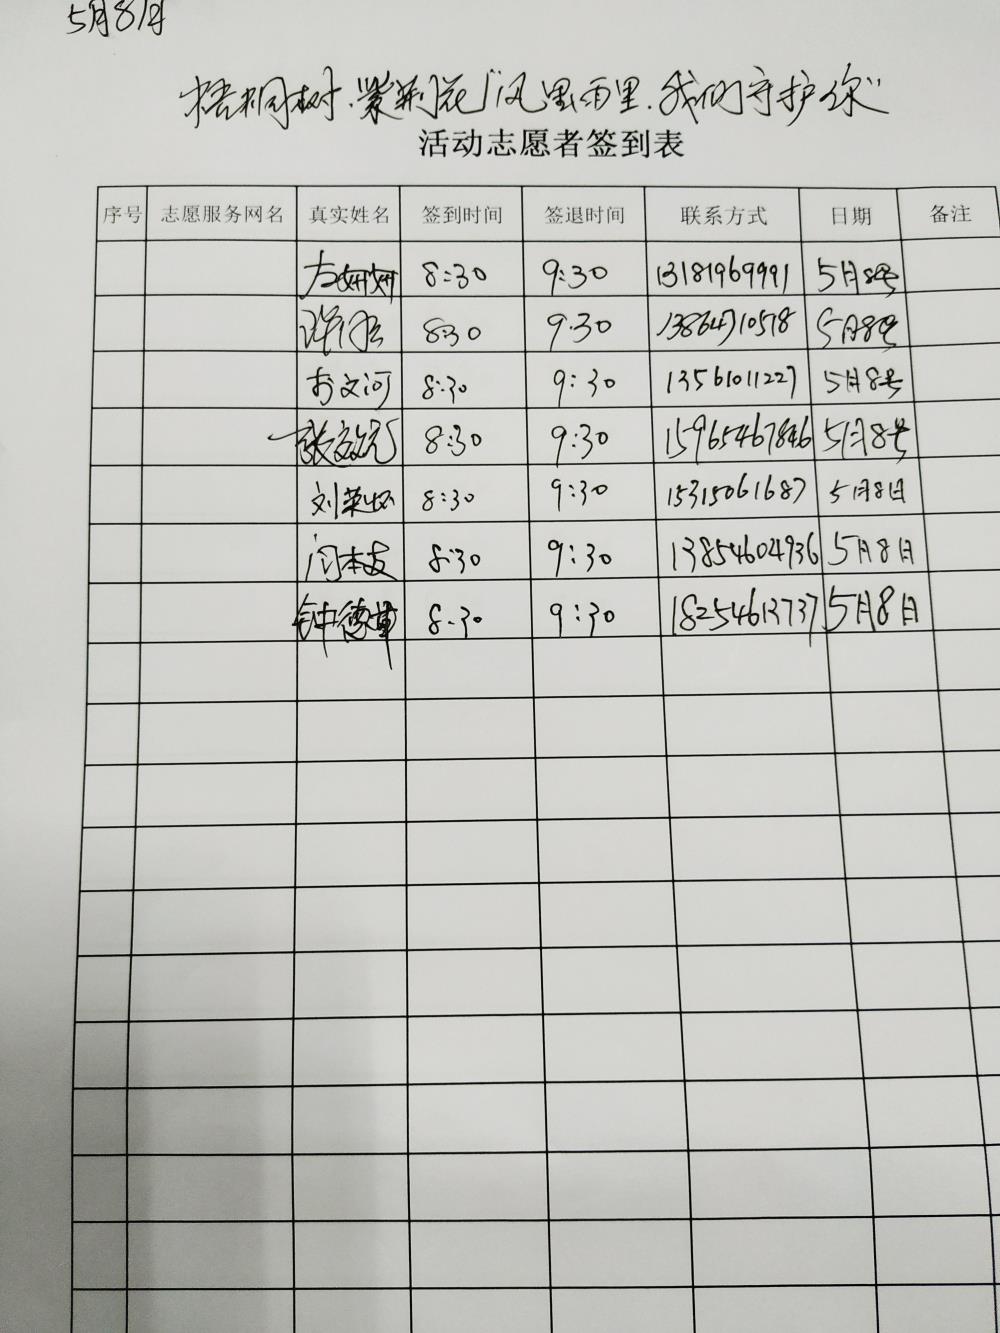 5月8日
梧桐树.紫荆花"风里雨里.我们守护你"
活动志愿者签到表
序号 志愿服务网名 真实姓名 签到时间 签退时间 联系方式 日期 备注
8:30 9:30 13181969991 5月8号
8:30 9.30 13864710518 5月8号
8:30 9:30 13561011227 5月8号
8:30 9:30 15965467846 5月8号
8:30 9:30 15315061687 5月8日
8:30 9:30 13854604936 5月8日
钟德 8.30 9:30 18254613737 5月8日